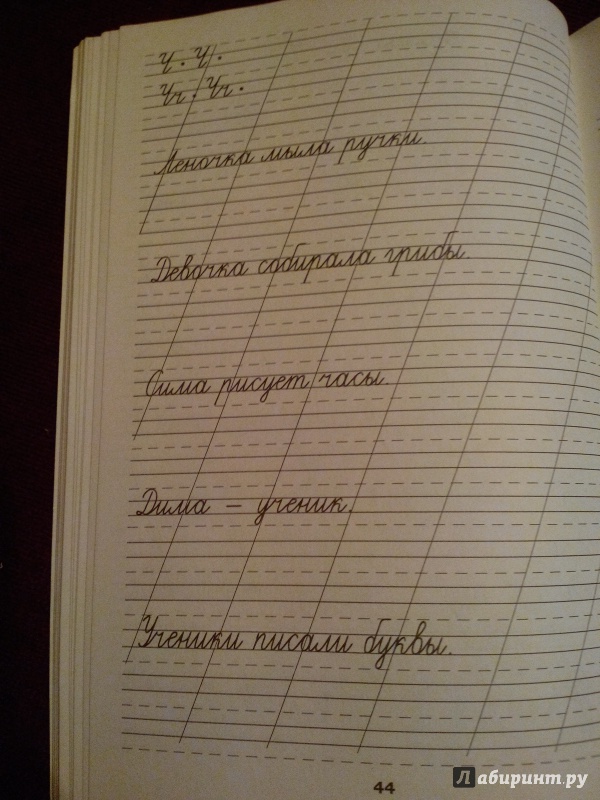 Ч . Ч .
Чч . Чч .
Леночка мыла ручки.
Девочка собирала грибы.
Сима рисует часы.
Дима – ученик.
Ученики писали буквы.
44
Лабиринт.ру